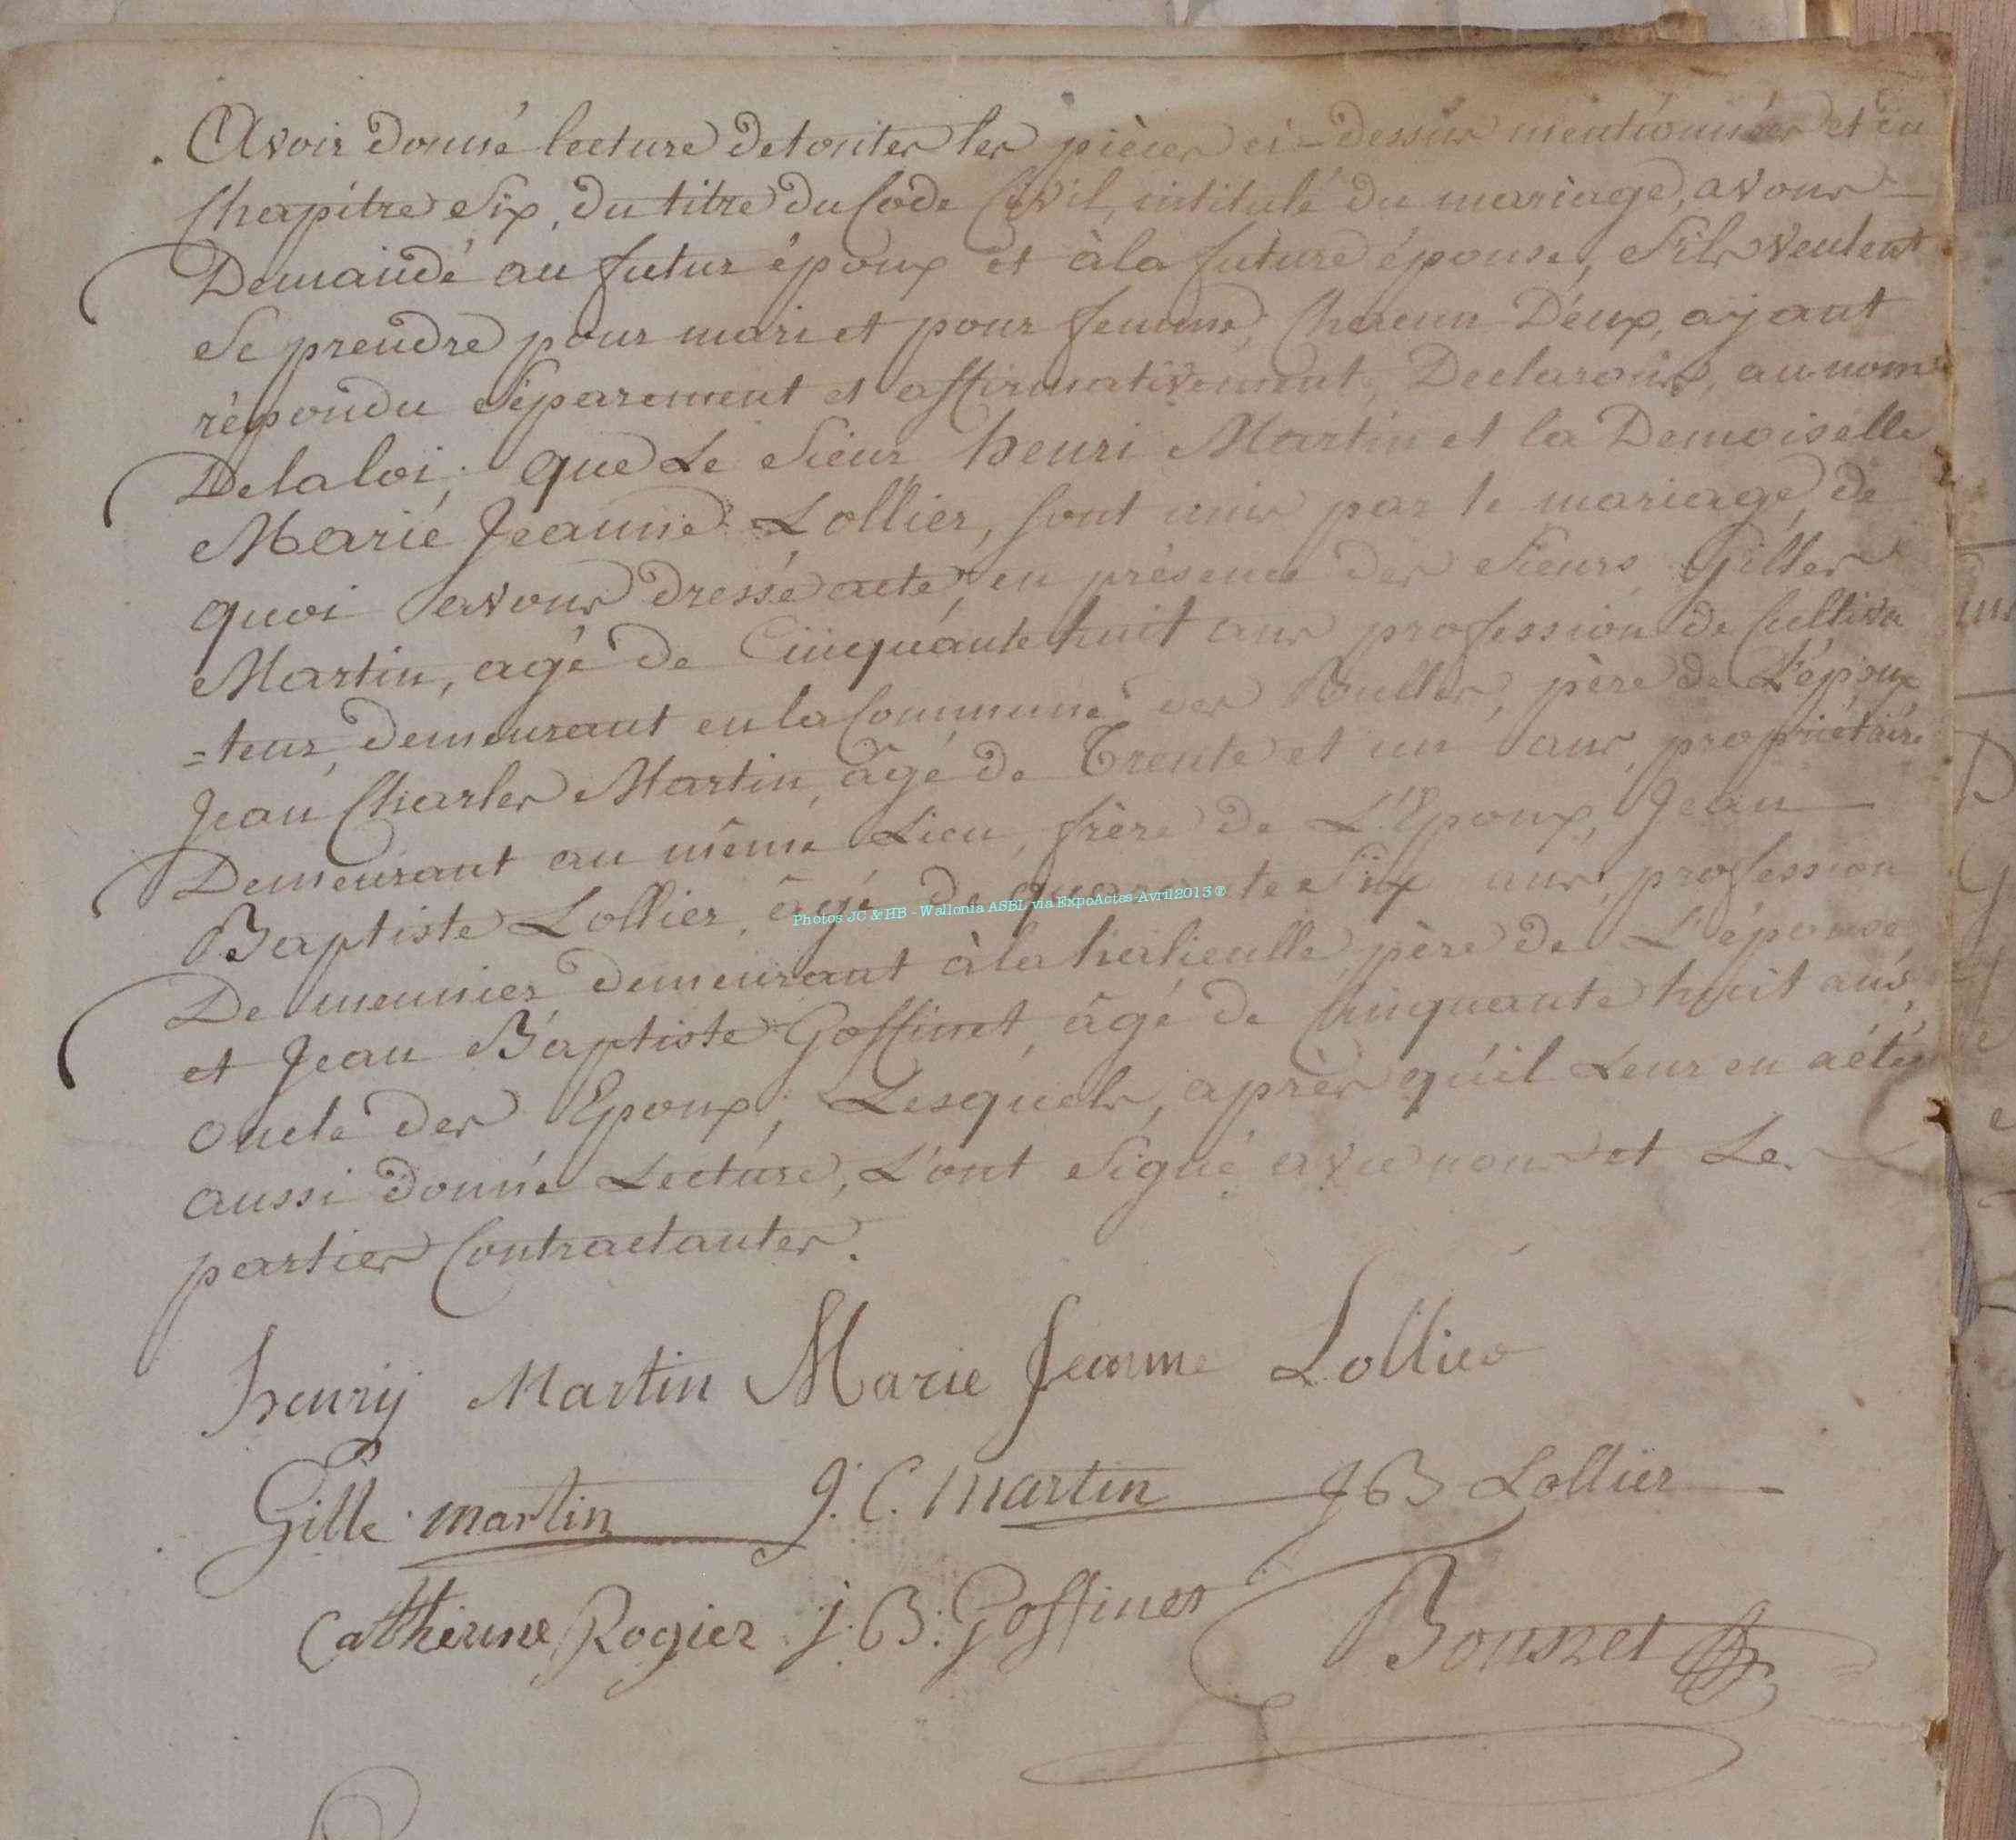 Avoir donné lecture de toutes les pièces ci-dessus mentionnées et du
Chapitre Six, du titre du Code Civil, intitulé du mariage, avons
Demandé au futur époux et à la future épouse, s'ils veulent
Se prendre pour mari et pour femme, Chacun D'eux, ayant
répondu Séparement et affirmativement, Declarons, au nom
De la loi, que Le Sieur henri Martin et la Demoiselle
Marie Jeanne Lollier, sont unis par le mariage, de
quoi avons dressé acte, en présence des Sieurs Gilles
Martin, agé de Cinquante huit ans profession de Cultiva
=teur, demeurant en la Commune des Bulles, père de L'époux
Jean Charles Martin, âgé de Trente et un ans, propriétaire
Demeurant au même Lieu, frère de L'Epoux, Jean
Baptiste Lollier, âgé de quarante Six ans, profession
De meunier demeurant à la hailleulle, père de L'épouse,
et Jean Baptiste Goffinet, âgé de Cinquante huit ans,
oncle des Epoux; Lesquels, après qu'il Leur en a été
aussi donné Lecture, L'ont Signé avec nous et Les
parties Contractantes.
henrij Martin Marie Jeanne Lollier
Gille martin J. C. martin J B Lollier
Catherine Rogier j. B. Goffinet
Photos JC & HB - Wallonia ASBL via ExpoActes Avril2015 ©